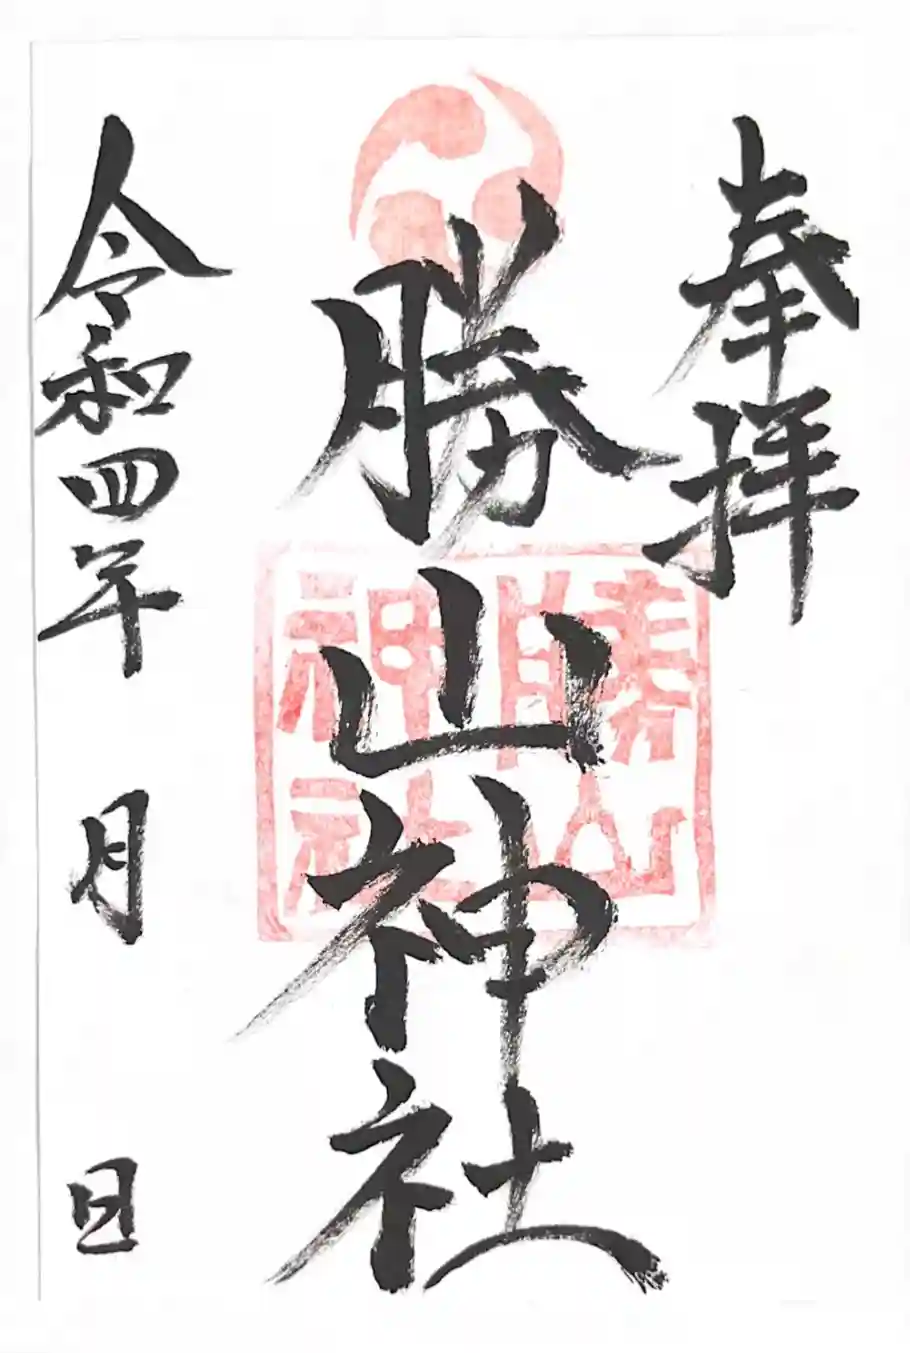 奉拝
勝山神社
勝山
神社
令和四年 月 日